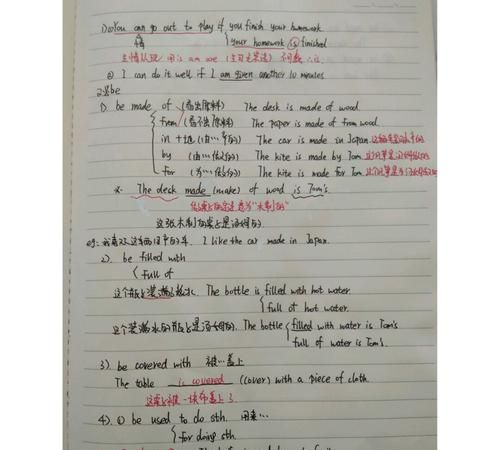 ① You can go out to play if you finish your homework
情 { your homework is finished
主情从现/ 用is am are
② I can do it well if I am given another 10 minutes
2. 量be
1). be made of (看出原料) The desk is made of wood.
from (看不出原料) The paper is made of from wood.
in +地 (由…) The car is made in Japan.
by (由…做的) The kite is made by Tom.
for (为…做的) The kite is made for Tom.
※. The desk made (make) of wood is Tom's.
"木制的"
这张木制的桌子是汤姆的
I like the car made in Japan.
2). be filled with
{ full of
这个瓶子装满热水. The bottle is filled with hot water.
{ full of hot water.
这个装满水的瓶子是汤姆的. The bottle { filled with water is Tom's
full of water is Tom's.
3) be covered with 被…盖上
The table is covered (cover) with a piece of cloth.
这桌子被一块布盖上了.
4). ① be used to do sth. 用来…
{ for doing sth.